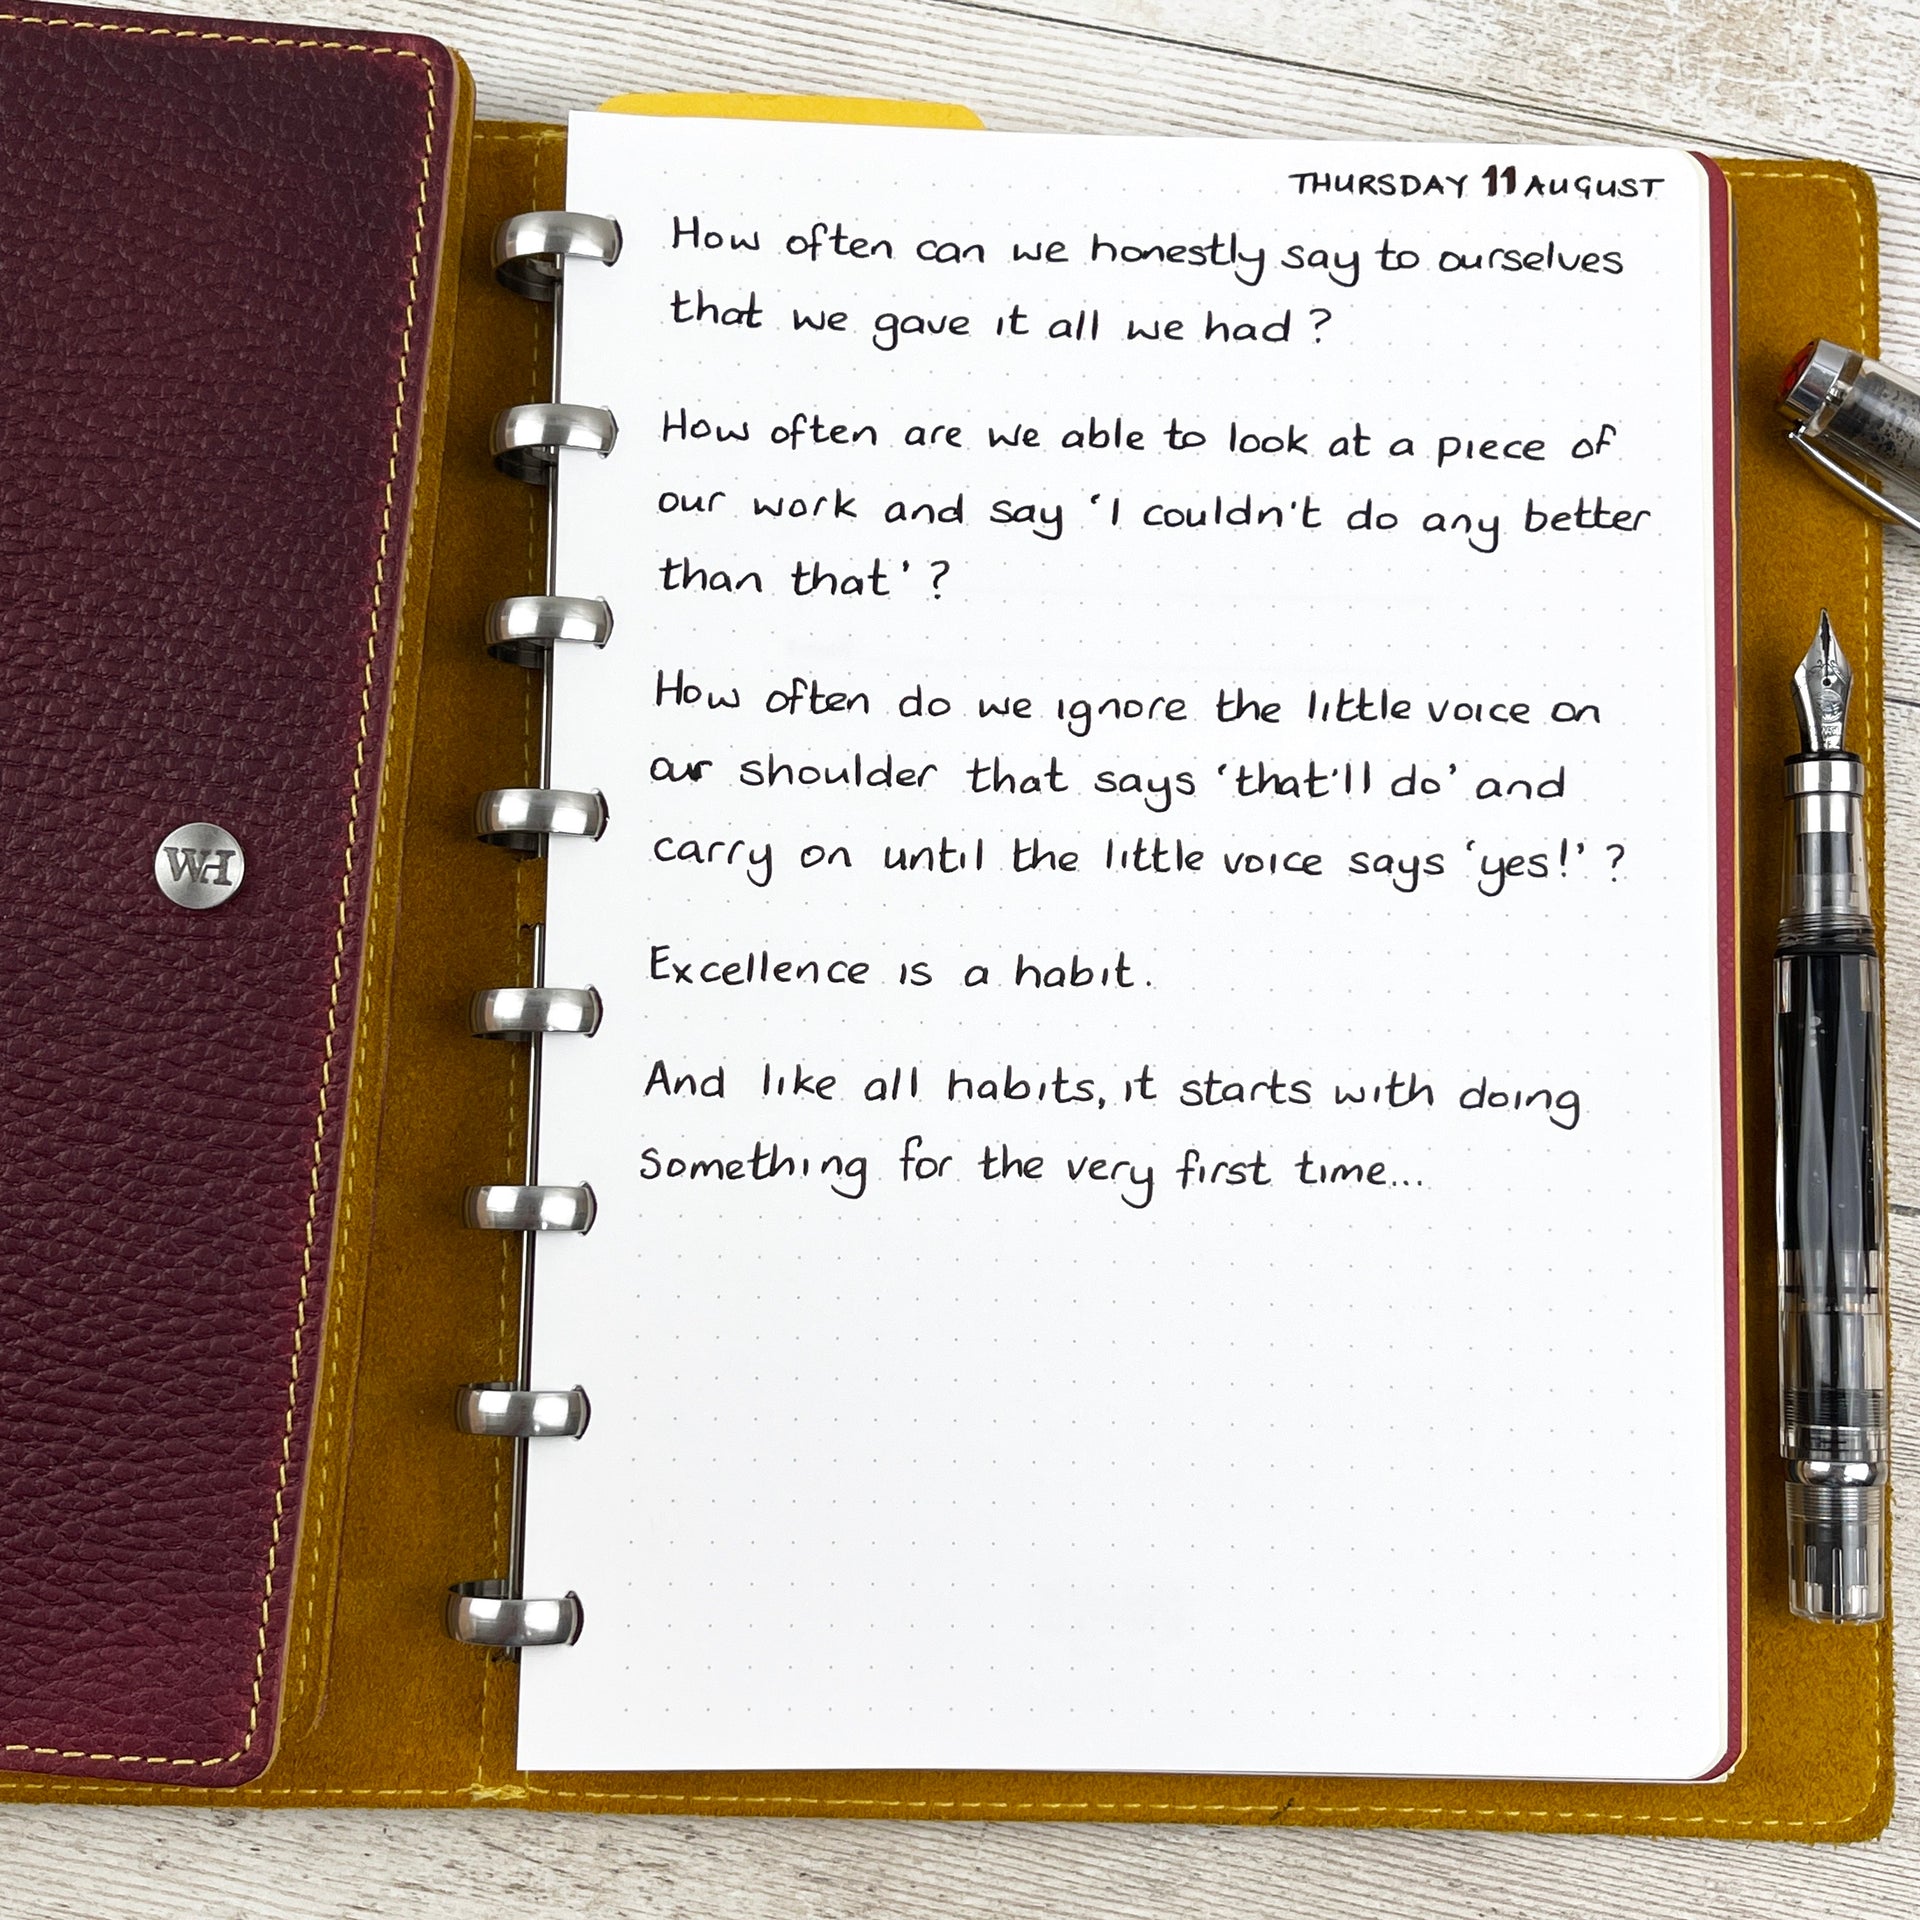 WH
THURSDAY 11 AUGUST
How often can we honestly say to ourselves
that we gave it all we had?
How often are we able to look at a piece of
our work and say 'I couldn't do any better
than that'?
How often do we ignore the little voice on
our shoulder that says 'that'll do' and
carry on until the little voice says 'yes!'?
Excellence is a habit.
And like all habits, it starts with doing
something for the very first time...